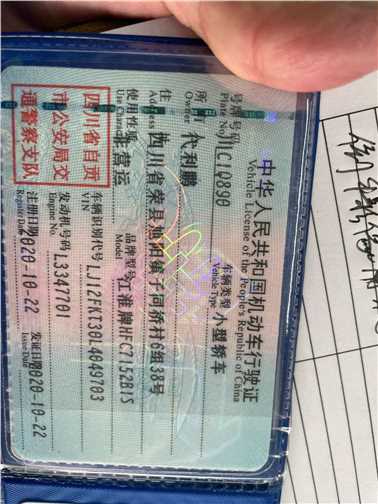 中华人民共和国机动车行驶证
Vehicle License of the People's Republic of China
号牌号码 川C1Q890
Plate No.
车辆类型 小型轿车
Vehicle Type
所有人 代利鹏
Owner
住址 四川省荣县旭阳镇子同桥村6组38号
Address
使用性质 非营运
Use Character
品牌型号 江淮牌HFC7152B1S
Model
四川省自贡
市公安局交
通警察支队
车辆识别代号 LJ12FKT30L4049703
VIN
发动机号码 L3347701
Engine No.
注册日期 2020-10-22
Register Date
发证日期 2020-10-22
Issue Date